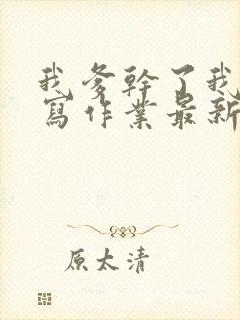 我爹幹了我
寫作業最新
原太清